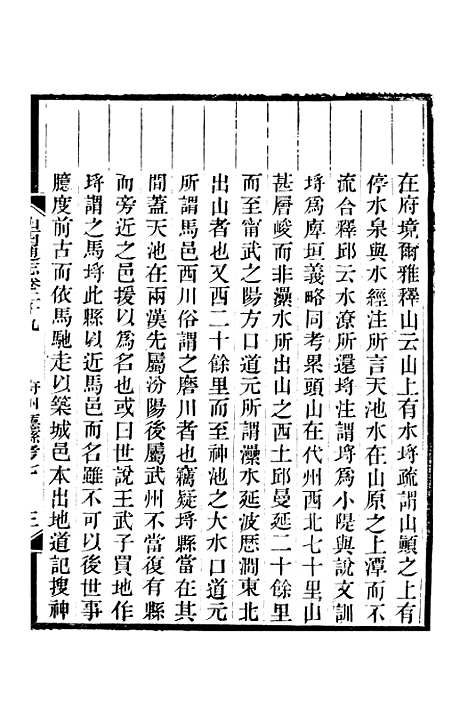 在府境爾雅釋山云山上有水埒疏謂山顚之上有
停水泉與水經注所言天池水在山原之上潭而不
流合釋邱云水潦所還埒注謂埒爲小隄與說文訓
埒爲庳垣義略同考累頭山在代州西北七十里山
甚層峻而非㶟水所出山之西土邱曼延二十餘里
而至甯武之陽方口道元所謂㶟水延波歷澗東北
出山者也又西二十餘里而至神池之大水口道元
所謂馬邑西川俗謂之磨川者也竊疑埒縣當在其
間蓋天池在兩漢先屬汾陽後屬武州不當復有縣
而旁近之邑援以爲名也或曰世說王武子買地作
埒謂之馬埒此縣以近馬邑而名雖不可以後世事
臆度前古而依馬馳走以築城邑本出地道記搜神
山西通志卷二十九
府州厅縣考七
三